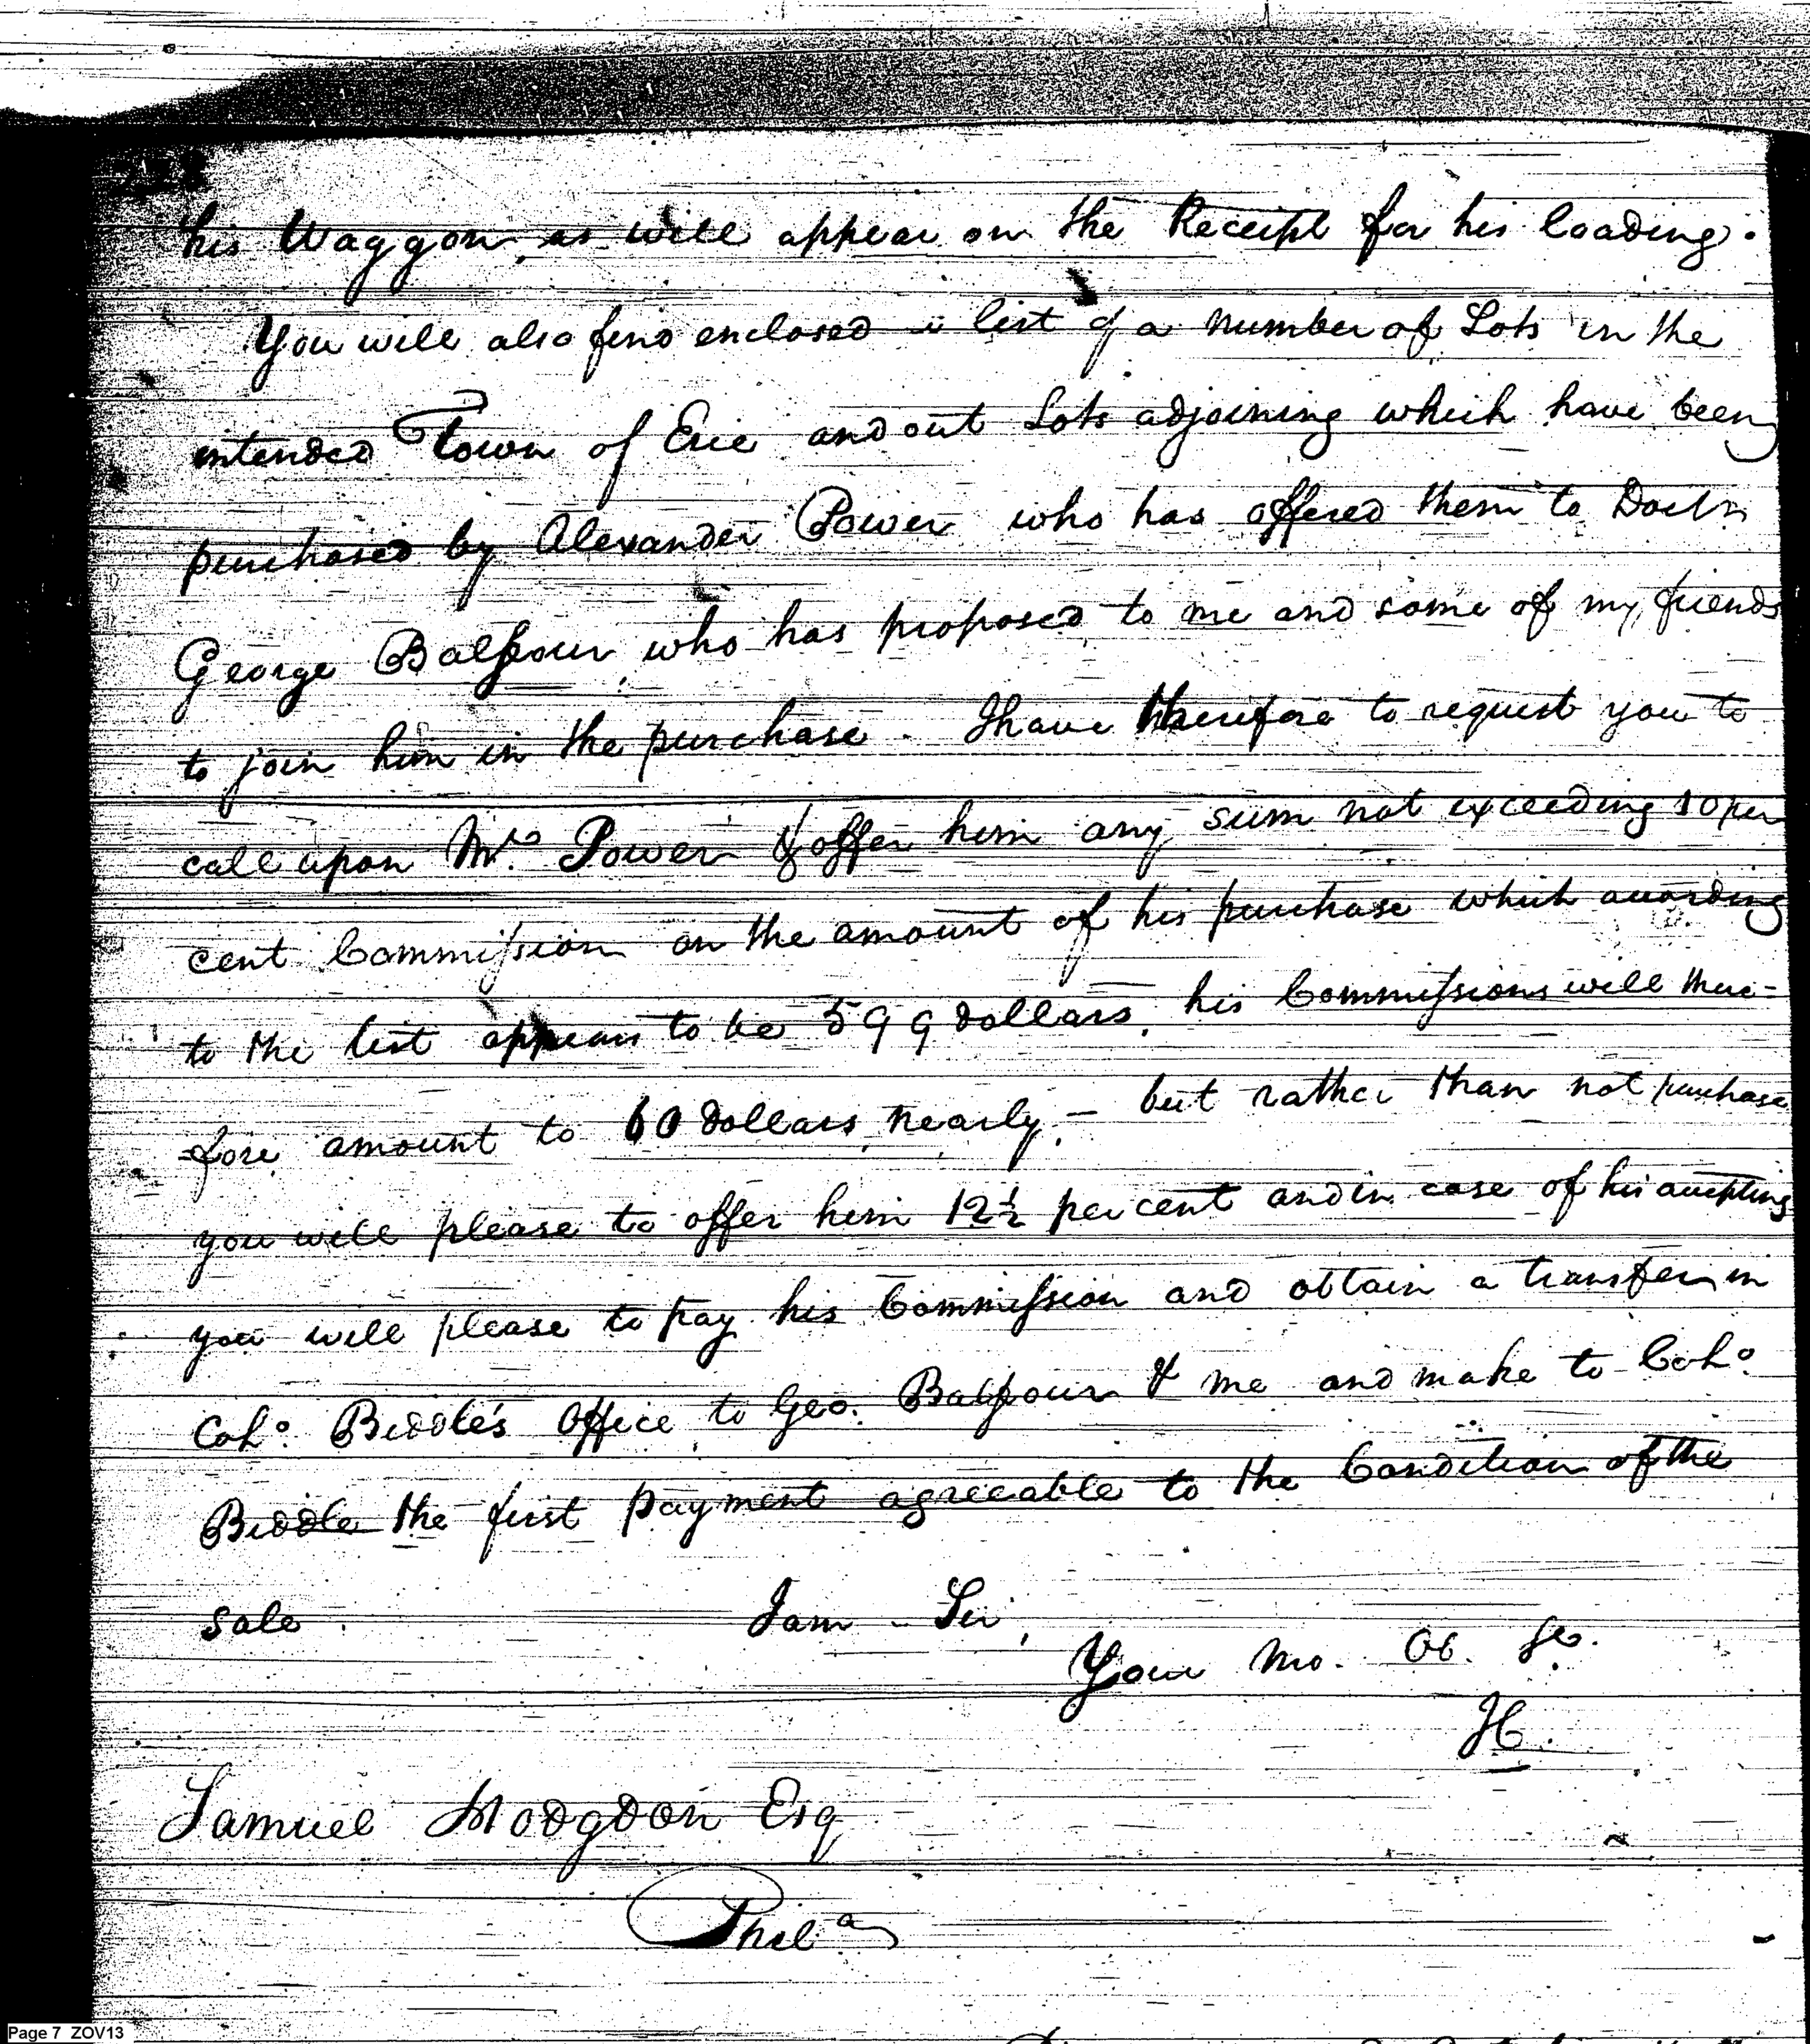 his Waggon, as will appear on the Receipt for his loading.
You will also find enclosed a list of a number of Lots in the
intended Town of Erie and out Lots adjoining which have been
purchased by Alexander Power who has offered them to Doctr
George Balfour who has proposed to me and some of my friends
to join him in the purchase. I have therefore to request you to
call upon Mr. Power & offer him any sum not exceeding 10 per
cent Commission on the amount of his purchase which according
to the list appears to be 599 dollars, his Commissions will there-
-fore amount to 60 dollars nearly - but rather than not purchase
you will please to offer him 12½ per cent and in case of his accepting
you will please to pay his Commission and obtain a transfer in
Colo. Biddle's Office to Geo. Balfour & me and make to Colo.
Biddle the first payment agreeable to the Condition of the
sale. I am Sir,
Your Mo. Ob. Se.
Samuel Hodgdon Esq
Phila
Page 7 ZOV13